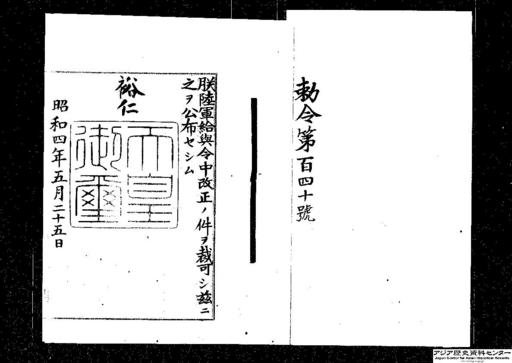 勅令第百四十號
朕陸軍給與令中改正ノ件ヲ裁可シ茲ニ
之ヲ公布セシム
裕仁
天皇
御璽
昭和四年五月二十五日
アジア歴史資料センター
Japan Center for Asian Historical Records